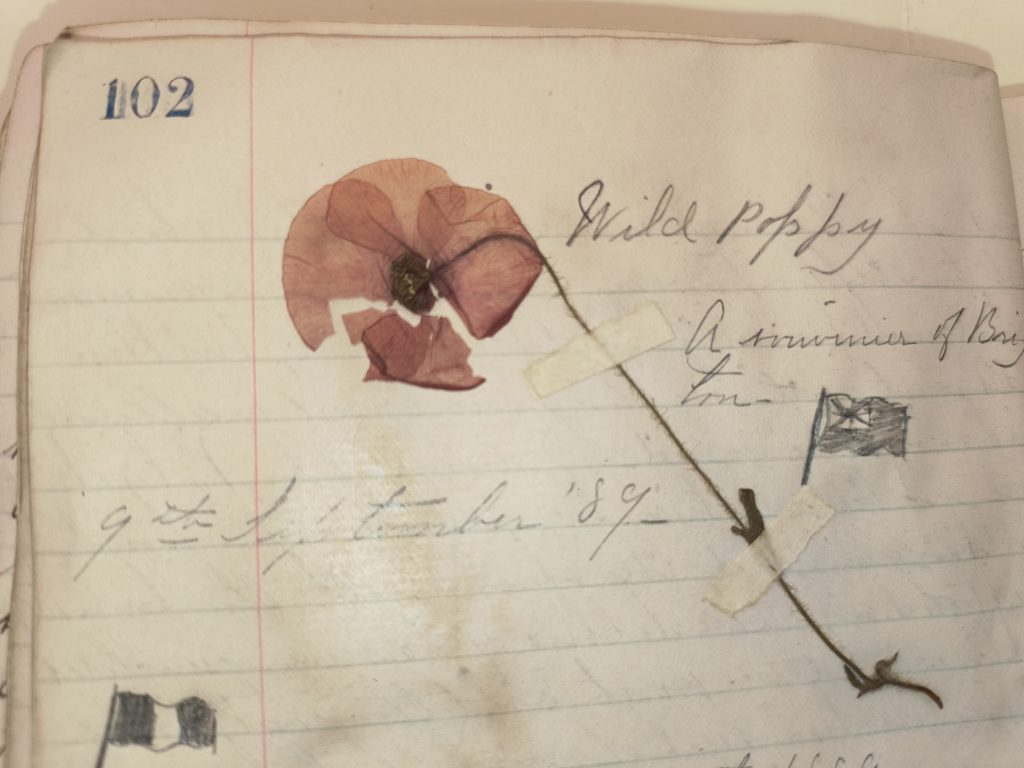 102
Wild Poppy
A souvinier of Brig
ton-
9th September '89-
1889